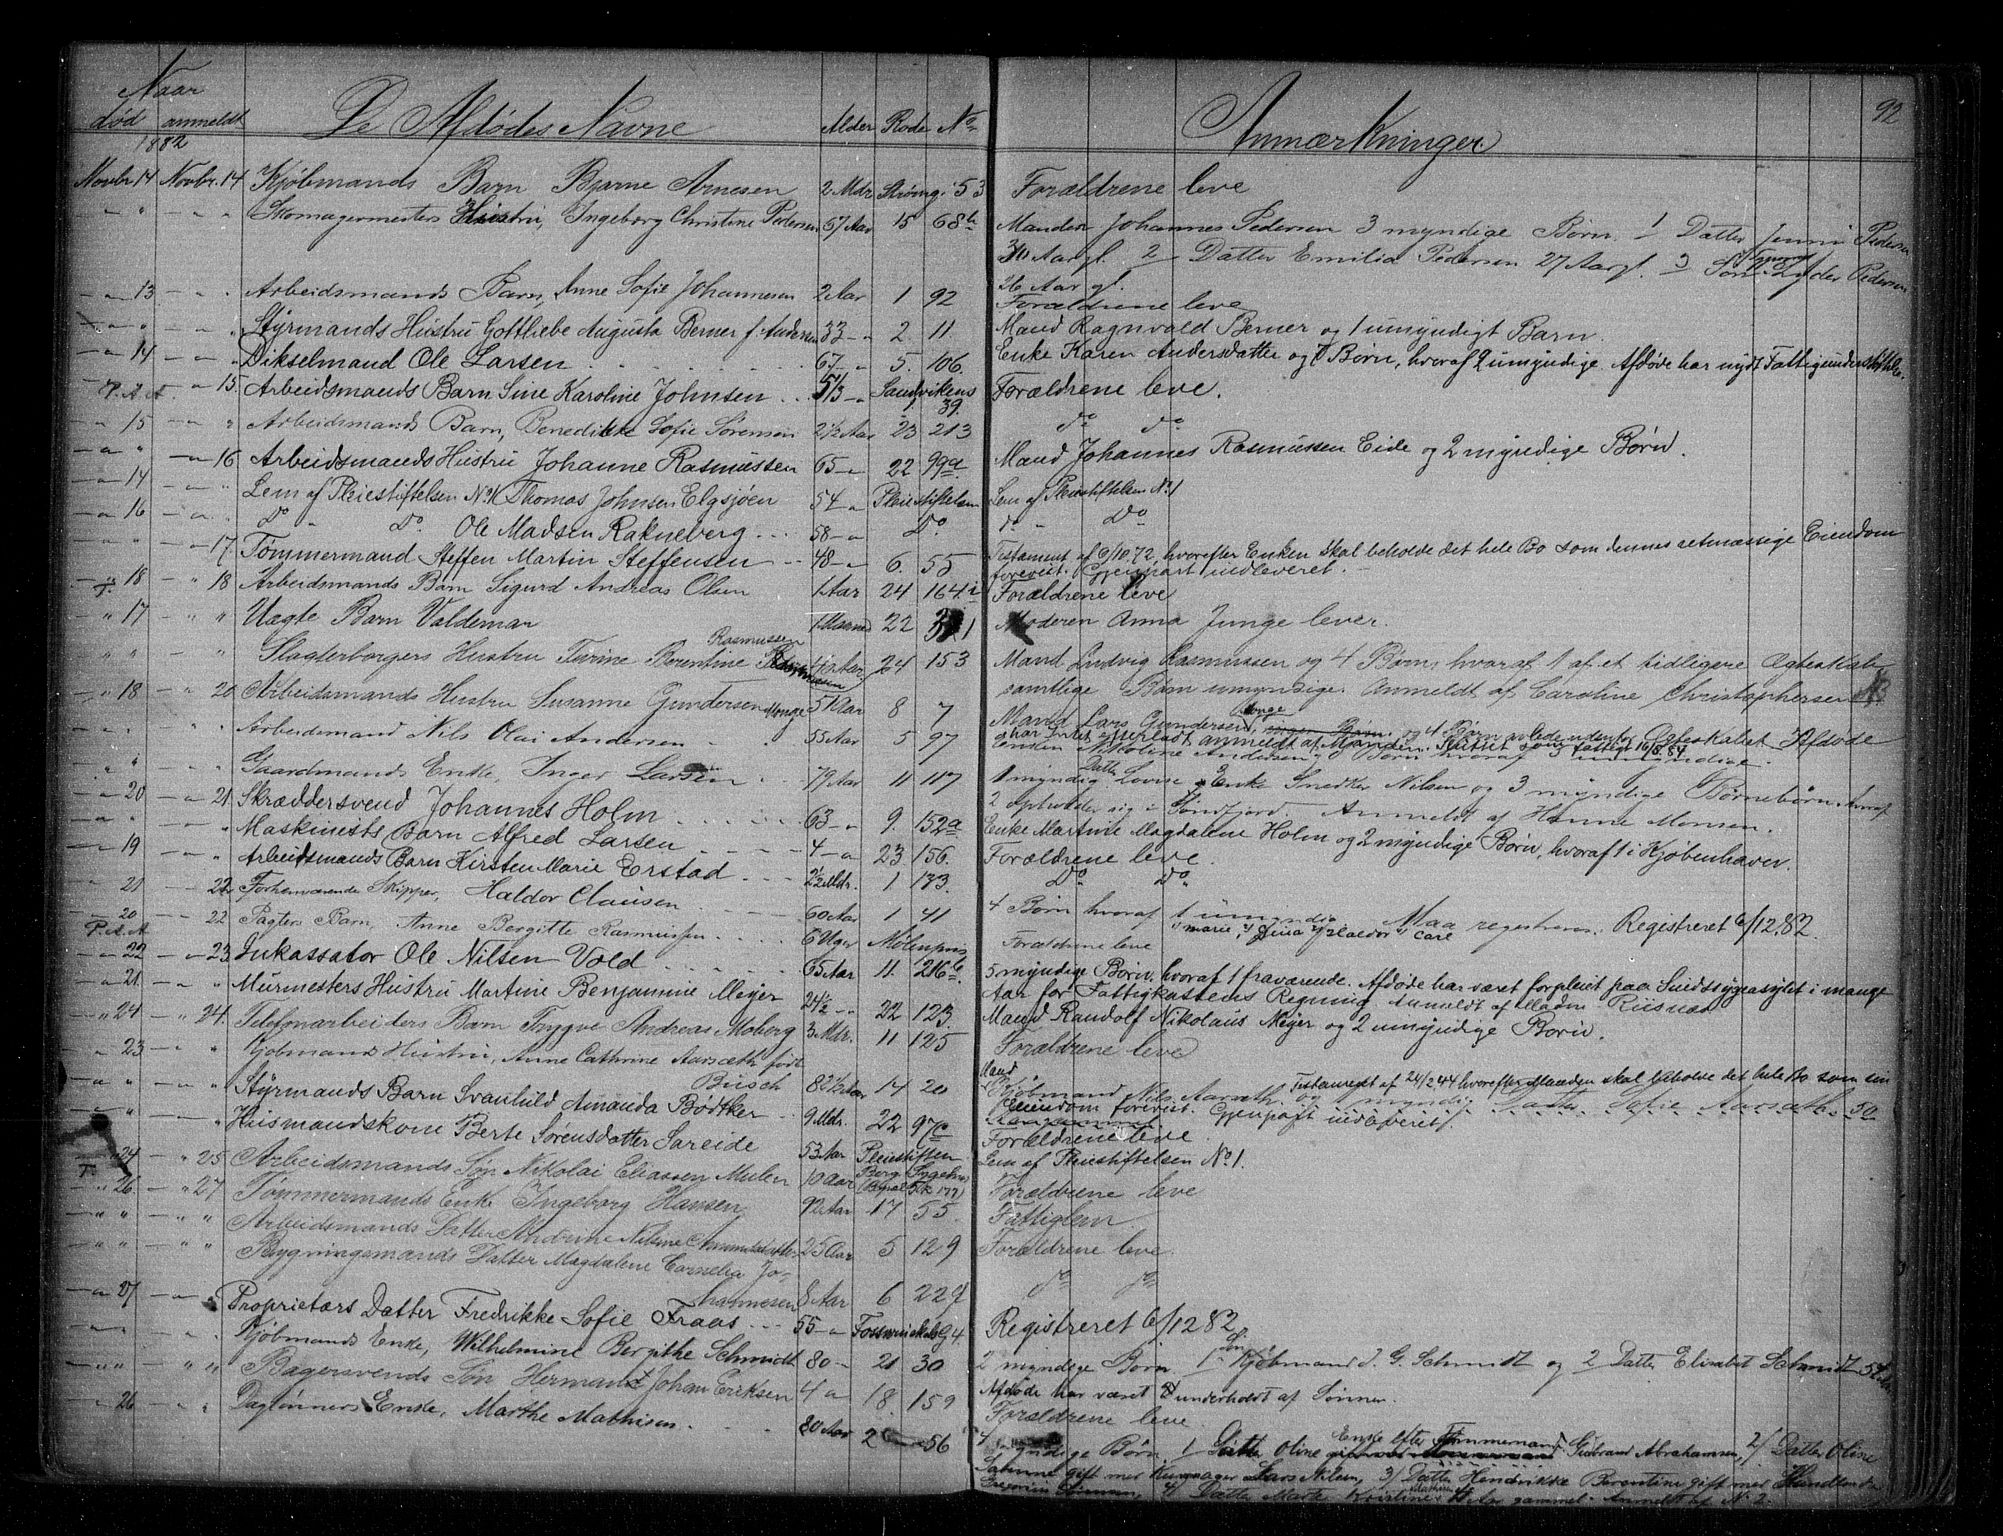 92
Naar
død anmeldt De Afdødes Navne Alder Rode No Anmærkninger
1882
Novbr. 14 Novbr. 14 Kjøbmands Barn Bjarne Arnesen 2 Mdr Strømg. 53 Forældrene leve
Skomagermesters Hustru, Ingeborg Christine Pedersen 67 Aar 15 68b Manden Johannes Pedersen 3 myndige Børn 1 Datter Jenni Pedersen
Aar gl. 2 Datter Emilia Pedersen 27 Aar gl. 3 Søn Pedersen
26 Aar gl.
13 Arbeidsmands Barn, Anne Sofie Johannesen 2 Aar 1 92 Forældrene leve
Styrmands Hustru Gottliebe Augusta Berner f. Andersen 33 2. 11 Mand Ragnvald Berner og 1 umyndigt Barn.
14 Dikselmand Ole Larsen 67 5. 106. Enke Karen Andersdatter og 7 Børn, hvoraf 2 umyndige. Afdøde har nydt Fattigunderstøttelse.
P. A. A. 15. Arbeidsmands Barn Sine Karoline Johnsen 5 1/3 Sandvikens 39. Forældrene leve.
15 Arbeidsmands Barn, Benedikte Sofie Sørensen 2 1/2 Aar 23 213 do do
16 Arbeidsmands Hustru Johanne Rasmussen 65 22 99a Mand Johannes Rasmussen Eide og 2 myndige Børn.
14 Lem af Pleiestiftelsen No 1 Thomas Johnsen Elgsjøen 54 Pleiestiftelsen Lem af Pleiestiftelsen No 1
16 Do Do Ole Madsen Rakneberg 58 Do do Do
17. Tømmermand Steffen Martin Steffensen 48 6. 55 Testament af 6/10 72, hvorefter Enken skal beholde det hele Bo som dennes retmæssige Eiendom
forevist. Gjenpart indleveret.
18 18 Arbeidsmands Barn Sigurd Andreas Olsen 1 Aar 24 164i Forældrene leve
17 Uægte Barn Valdemar 1 Maaned 22 Moderen Anna Junge lever.
Slagterborgers Hustru Turine Berentine Rasmussen Aar 24 153 Mand Ludvig Rasmussen og 4 Børn, hvoraf 1 af et tidligere Ægteskab
samtlige Børn umyndige. Anmeldt af Caroline Christophersen
18 20 Arbeidsmands Hustru Susanne Gundersen Monge 51 Aar 8 7 Mand Lars Gundersen Monge og 4 Børn avlede udenfor Ægteskabet Afdøde
har intet efterladt anmeldt af Manden. Skiftet som fattigt 16/8 84
Arbeidsmand Nils Olai Andersen 55 Aar 5 97 Enken Nikoline Andersen Børn hvoraf 3 umyndige.
Gaardmands Enke, Inger Larsen 79 Aar 11 117 1 myndig Datter Lovise Enke Snedker Nilsen og 3 myndige Børnebørn hvoraf
2 opholder sig i Søndfjord. Anmeldt af Hanne Monsen.
20 21 Skræddersvend Johannes Holm 63 9. 152a Enke Martine Magdalene Holm og 2 myndige Børn, hvoraf 1 i Kjøbenhavn.
Maskinists Barn Alfred Larsen 4 23 156. Forældrene leve
19 Arbeidsmands Barn Kirsten Marie Erstad 2 1/2 Mdr. 1 133. Do Do
21 22 Forhenværende Skipper, Haldor Clausen 60 Aar 1 41 4 Børn hvoraf 1 umyndig Maa registreres. Registreret 6/12 82.
20 22 Pagters Barn, Anne Bergitte Rasmussen 6 Uger Møllenpris Forældrene leve
P. A. A.
22 23. Inkassator Ole Nilsen Vold 65 Aar 11. 216b 5 myndige Børn, hvoraf 1 fraværende. Afdøde har været forpleiet paa Sindssygeasylet i mange
Aar for Fattigkassens Regning. Anmeldt af Madm. Riisnæs
21 Murmesters Hustru Martine Benjamine Meyer 24 1/2 22 123. Mand Randolf Nikolaus Meyer og 2 umyndige Børn.
24 24. Telefonarbeiders Barn Trygve Andreas Moberg 3 Mdr. 11 125 Forældrene leve
23 Kjøbmands Hustru, Anne Cathrine Aarsæth født Busch 82 1/2 Aar 14 20 Mand Kjøbmand Nils Aarsæth og 1 myndig Datter Sofie Aarsæth 50
Testament af 24/2 44 hvorefter Manden skal beholde det hele Bo som sin
Eiendom forevist. Gjenpart indleveret.
Styrmands Barn Svanhild Amanda Bødtker 9 Mdr. 22 97c Forældrene leve.
Husmandskone Berte Sørensdatter Sareide 53 Aar Pleiestiften Lem af Pleiestiftelsen No 1.
24 25 Arbeidsmands Søn Nikolai Eliassen Mulen 10 Aar Berg. Sygehus Forældrene leve
26 27 Tømmermands Enke Ingeborg Hansen 92 Aar 17 55. Fattiglem
Arbeidsmands Datter Andrine Nilsine Amundsdatter 25 Aar 5 129 Forældrene leve
Bygningsmands Datter Magdalene Cornelia Johannesen 8 Aar 6 229 do do
27 Proprietærs Datter Fredrikke Sofie Fraas 55 Fosswinkelsg 4 Registreret 6/12 82
Kjøbmands Enke, Wilhelmine Bergithe Schmidt 80 21 30 2 myndige Børn 1 Søn Kjøbmand J. G. Schmidt og 2 Datter Elisabet Schmidt
Afdøde har været underholdt af Sønnen.
Bagersvends Søn Herman Johan Eriksen 4 18. 159 Forældrene leve.
26 Dagleiners Enke, Marthe Mathisen. 80 Aar 2 56 4 myndige Børn. 1 Datter Oline Enke efter Tømmermand Gudbrand Abrahamsen, 2/ Datter Oline
gift med Lars Nilsen, 3/ Datter Hendrikke Berentine gift med
4) Datter Marte Kristine Mathisen Aar gammel. Anmeldt af No 2.